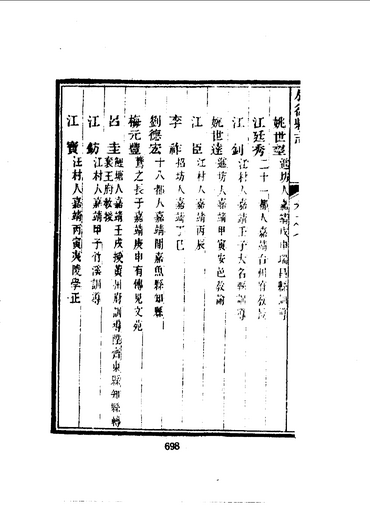 姚世望 進坊人嘉靖戊申瑞昌縣訓導
江廷秀 二十一都人嘉靖台州府教授
江釗 江村人嘉靖壬子大名縣訓導
姚世達 進坊人嘉靖甲寅安邑教諭
江臣 江村人嘉靖丙辰
李祚 招坊人嘉靖丁巳
劉德宏 十八都人嘉靖閒嘉魚縣知縣
梅元 鶚之長子嘉靖庚申有傳見文苑
呂圭 人嘉靖壬戌授黃州府訓導陞齊東縣知縣轉
襄王府教授
江魴 江村人嘉靖甲子竹溪訓導
江寶 江村人嘉靖丙寅夷陵學正
698